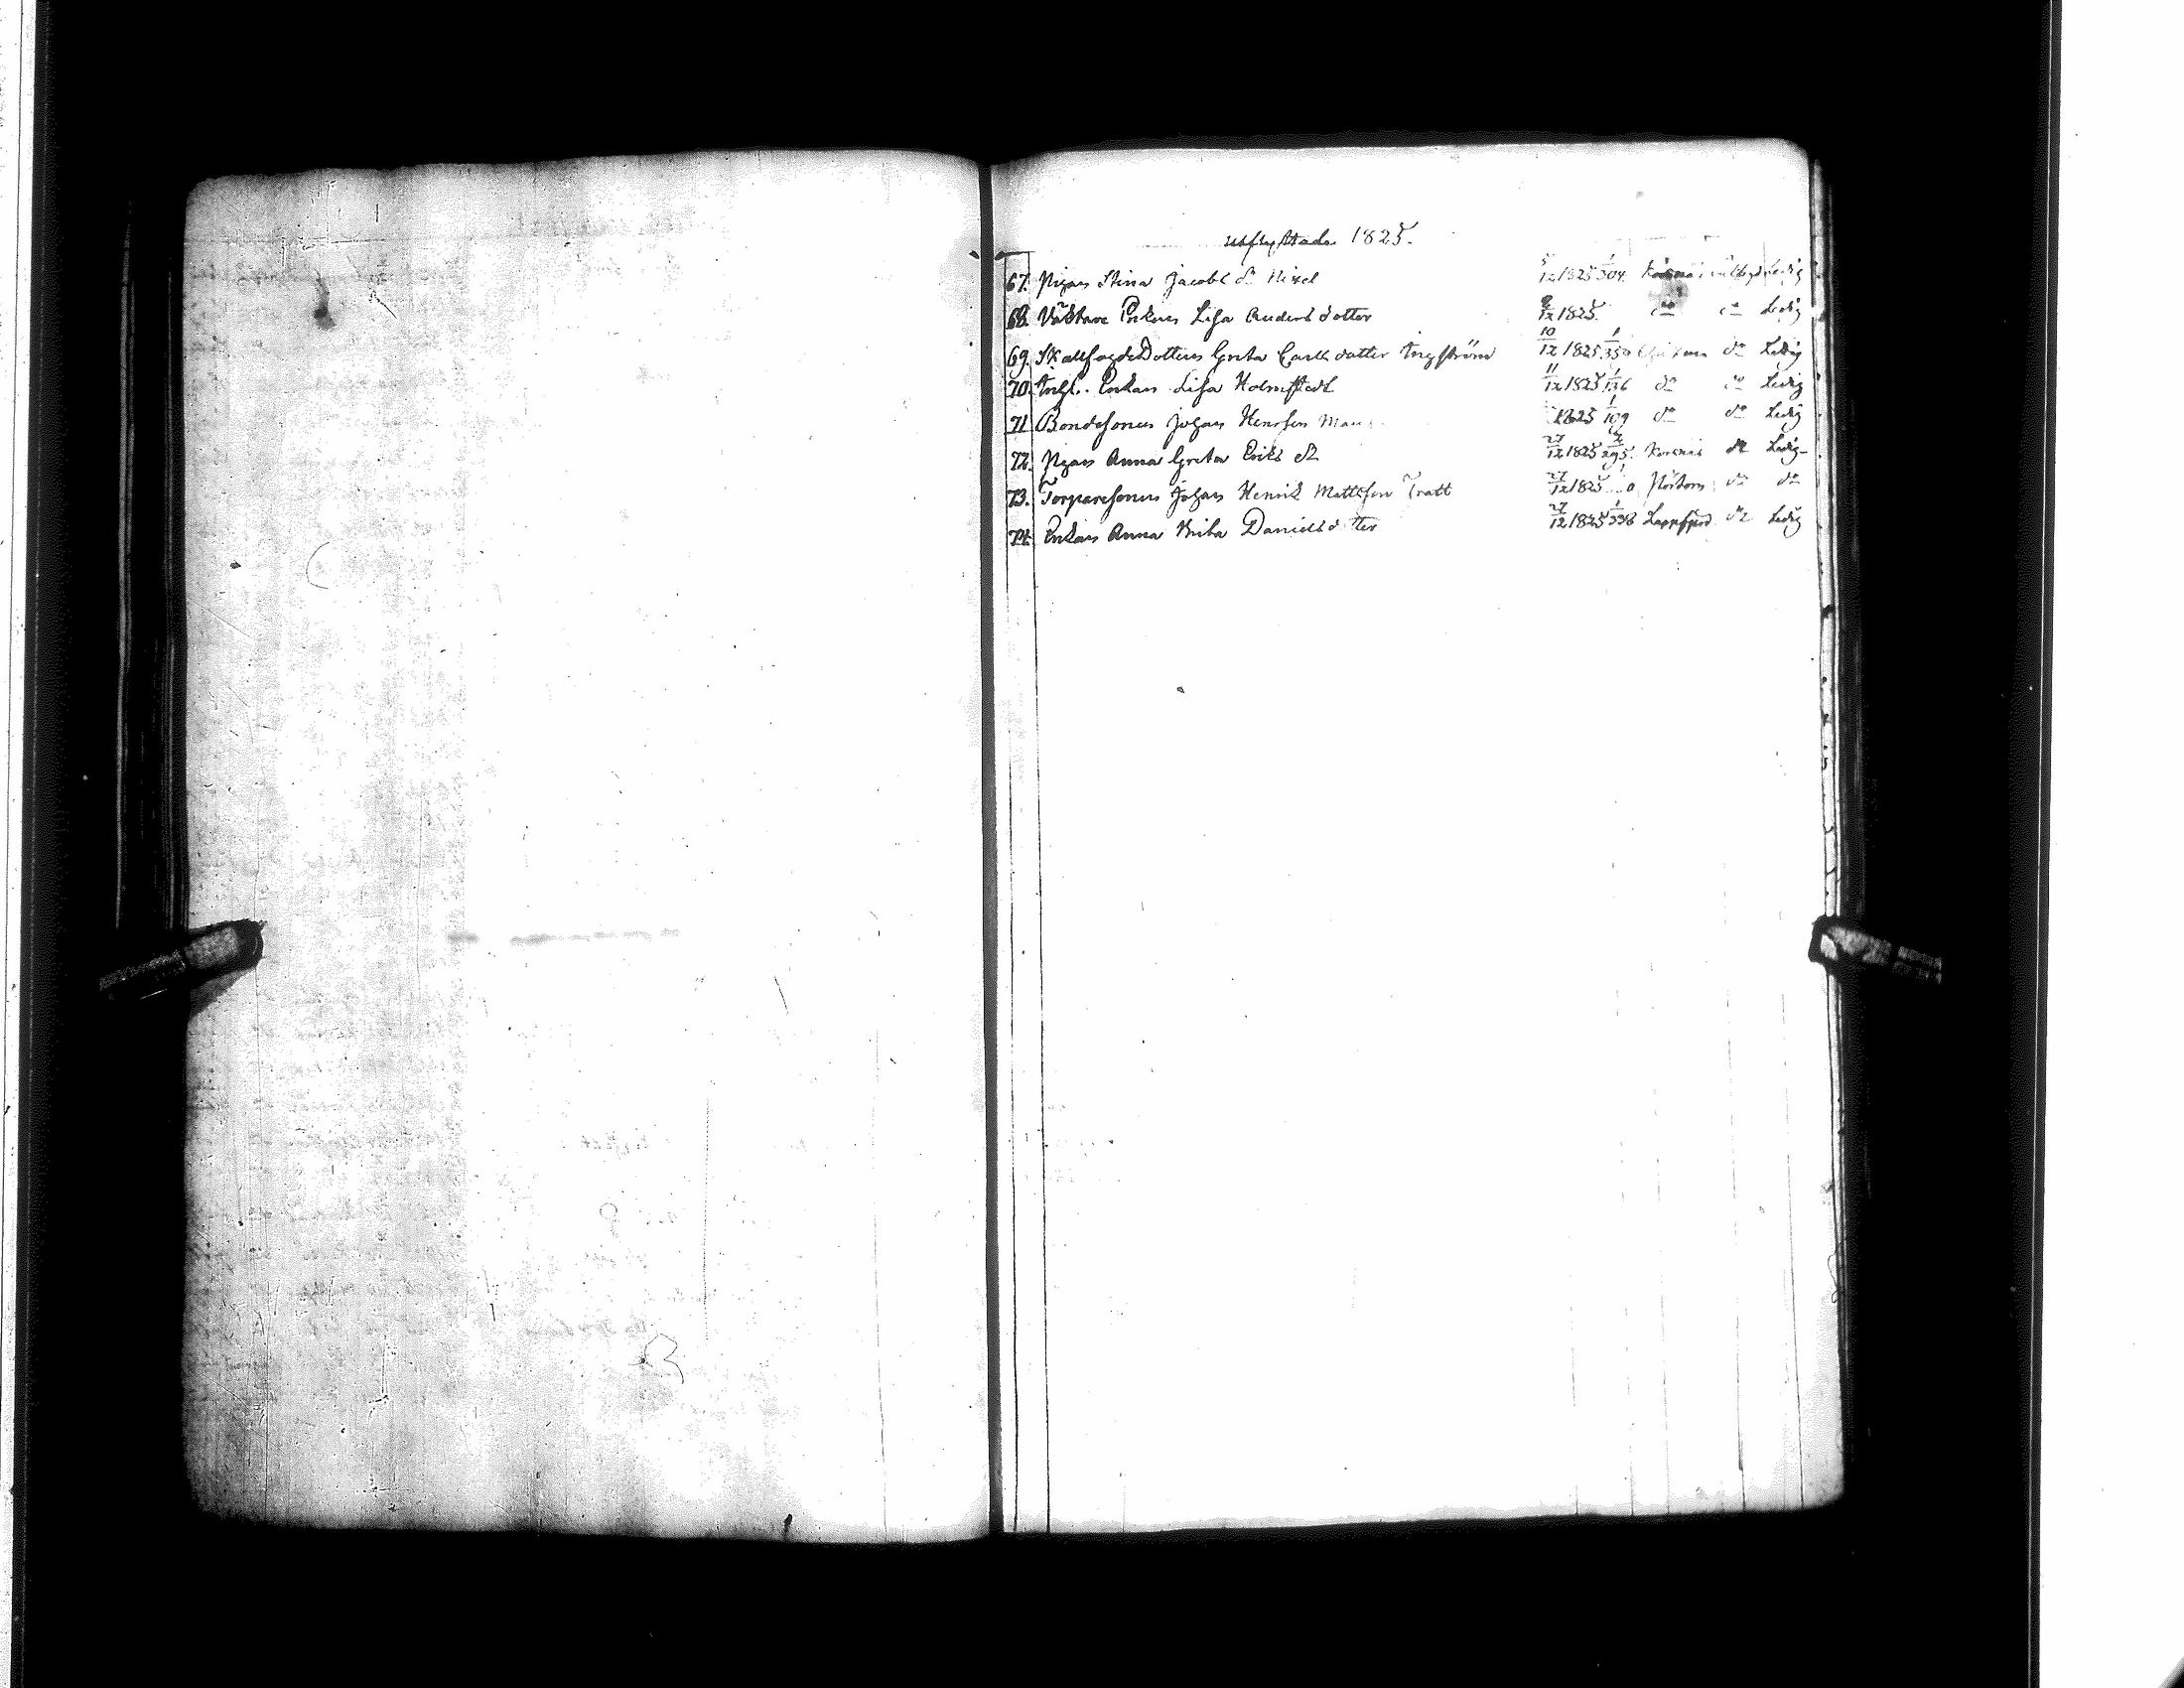 utflyttade 1825.
67. Pigan Stina Jacobs dr Nixel 5/12 1825 1/304 Ledig
68. Väktare Enkan Lisa Anders dotter 8/12 1825. do do Ledig
69. Dottern Greta Carls dotter Ängström 10/12 1825 1/350 do Ledig
70. Enkan Lisa Holmstedt 11/12 1825 1/136 do do Ledig
71 Bondesonen Johan Henrsson 1825 1/109 do do Ledig
72. Pigan Anna Greta Eriks dr 27/12 1825 295. Korsnäs do Ledig
73. Torparesonen Johan Henrik Mattsson Tratt 27/12 1825 do do
74. Enkan Anna Brita Danielsdotter 27/12 1825 1/398 Lappfjerd do Ledig